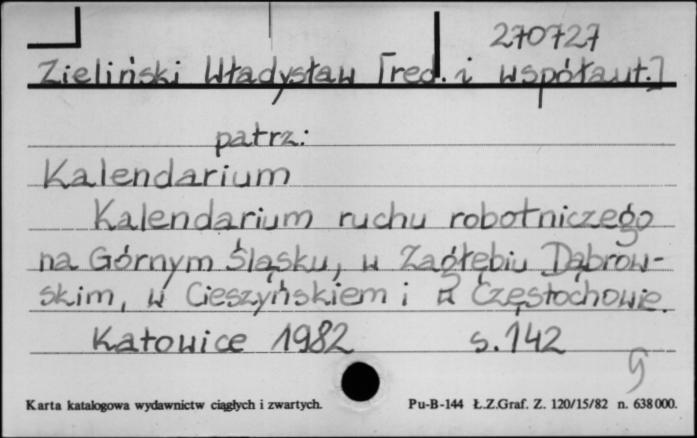 270727
Zieliński Władysław [red. i współaut.]
patrz:
Kalendarium
Kalendarium ruchu robotniczego
na Górnym Śląsku, w Zagłębiu Dąbrow-
skim, w Cieszyńskiem i w Częstochowie.
Katowice 1982 s. 142
Karta katalogowa wydawnictw ciągłych i zwartych. Pu-B-144 Ł.Z.Graf. Z. 120/15/82 n. 638000.